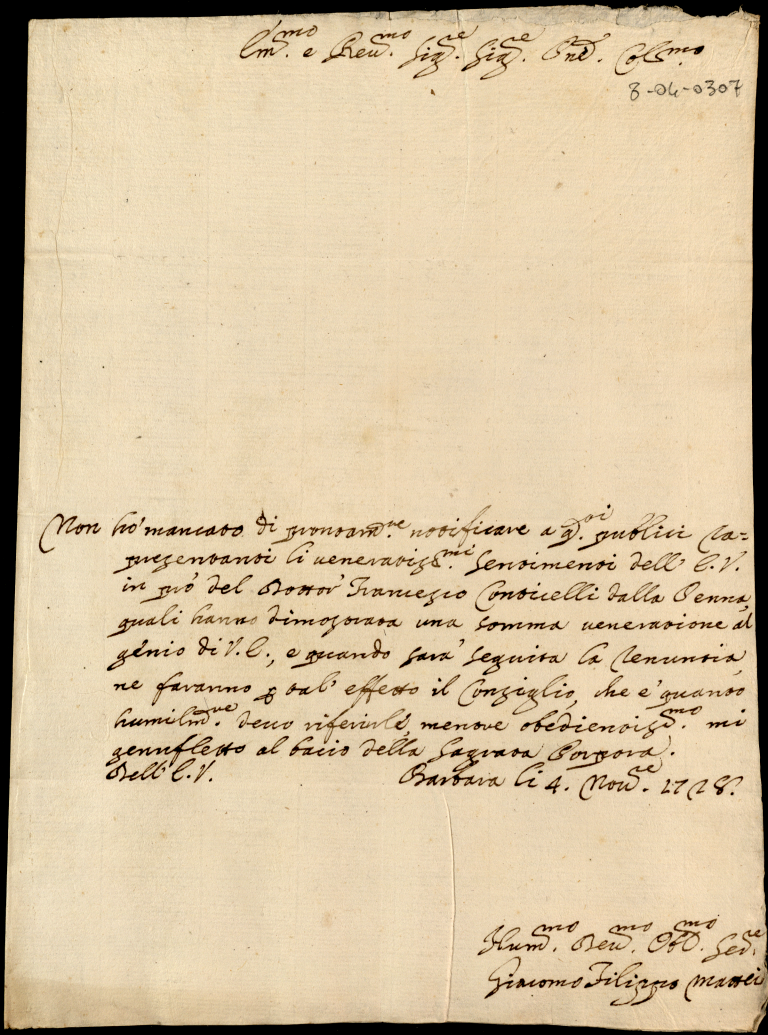 Em.mo e Reu.mo Sig.re Sig.re Pne. Col.mo
8-04-0307
Non hò mancato di prontam.te notificare a q.sti publici ra=
presentanti li veneratiss.mi sentimenti dell'E.V.
in prò del Dottor Francesco Conticelli dalla Penna,
quali hanno dimostrata una somma veneratione al
genio di V.E., e quando sarà seguita la renuntia,
ne faranno p tal' effetto il Consiglio, che è quanto
humilm.te devo riferirle, mentre obedientiss.mo mi
genufletto al bacio della Sagrata Porpora.
Dell'E.V. Barbara li 4. Nou.re 1728.
Hum.mo Deu.mo Obb.mo Ser.re
Giacomo Filippo Mattei